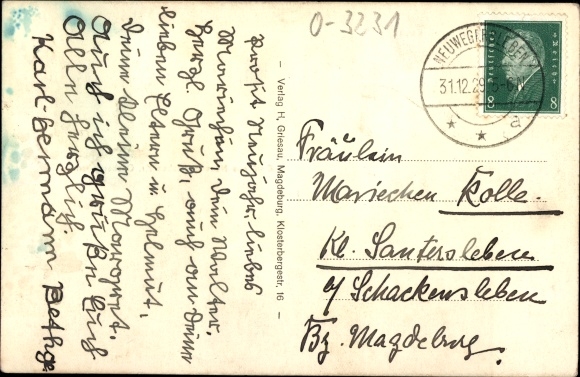 0-3231
Prosit Neujahr liebes
Mariechen, Dein Walter.
Herzl. Gruß, auch an Deine
lieben Eltern u. Helmut,
Deine kleine Margret.
Auch ich grüße Euch
Alle herzlich.
Karl-Hermann Bethge
– Verlag H. Griesau, Magdeburg, Klosterbergestr. 16 –
31.12.29
Deutsches Reich
8 8
Fräulein
Mariechen Kolle.
Kl. Santersleben
b/ Schackensleben
Bz. Magdeburg.